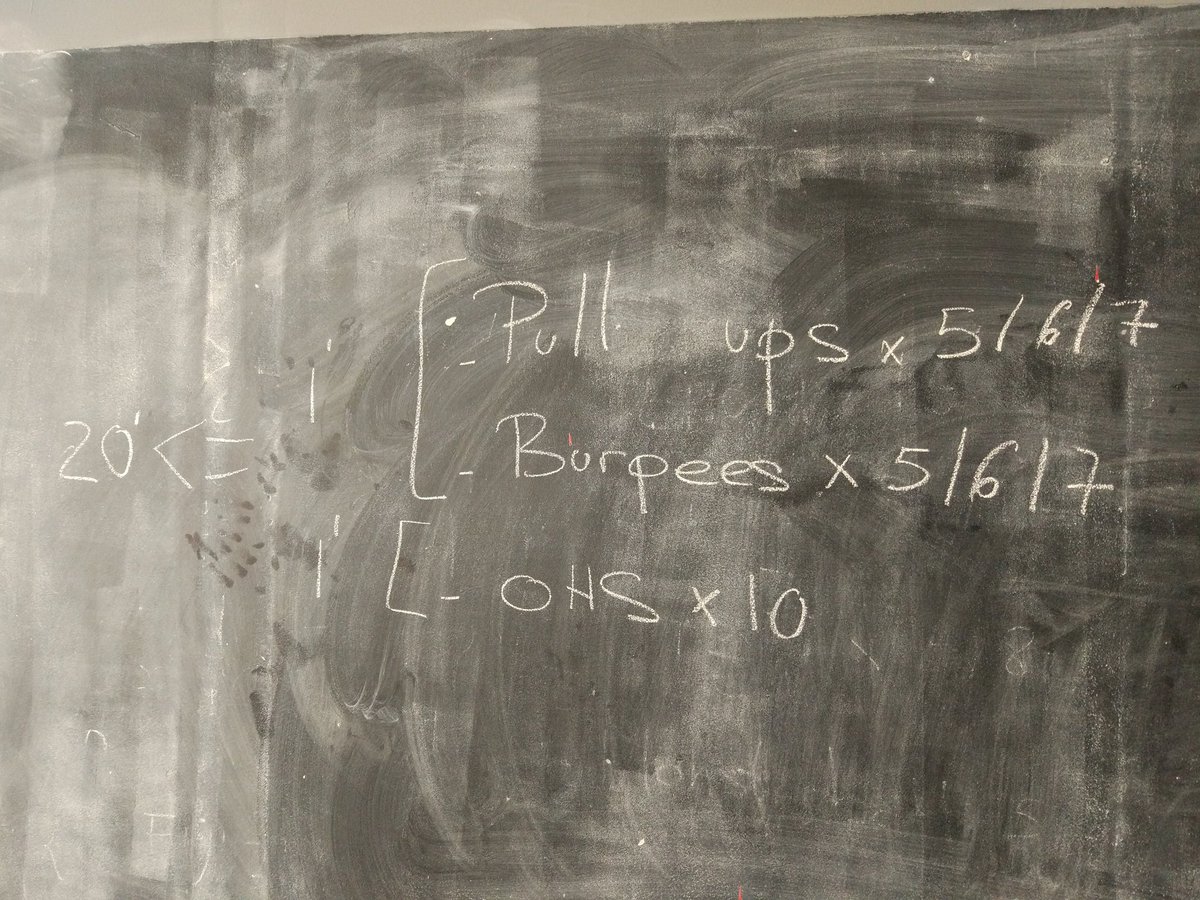 1' - Pull ups x 5/6/7
20' < - Burpees x 5/6/7
1' - OHS x 10